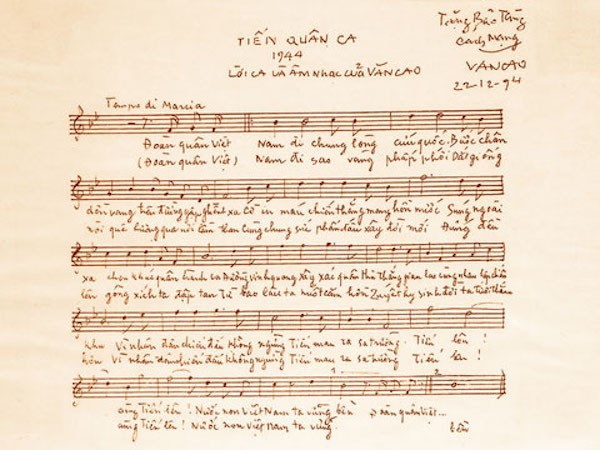 TIẾN QUÂN CA
1944
LỜI CA VÀ ÂM NHẠC CỦA VĂN CAO
Tặng Bảo Tàng
Cách Mạng
VĂN CAO
22-12-94
Tempo di Marcia
Đoàn quân Việt Nam đi chung lòng cứu quốc. Bước chân
(Đoàn quân Việt) Nam đi sao vàng phấp phới Dắt giống
dồn vang trên đường gập ghềnh xa Cờ in máu chiến thắng mang hồn nước Súng ngoài
nòi quê hương qua nơi lầm than Cùng chung sức phấn đấu xây đời mới Đứng đều
xa chen khúc quân hành ca Đường vinh quang xây xác quân thù Thắng gian lao cùng nhau lập chiến
lên gông xích ta đập tan Từ bao lâu ta nuốt căm hờn Quyết hy sinh đời ta tươi thắm
khu Vì nhân dân chiến đấu không ngừng Tiến mau ra sa trường. Tiến lên!
hơn Vì nhân dân chiến đấu không ngừng Tiến mau ra sa trường Tiến lên!
cùng Tiến lên! Nước non Việt Nam ta vững bền quân Việt...
cùng Tiến lên! Nước non Việt Nam ta vững. bền